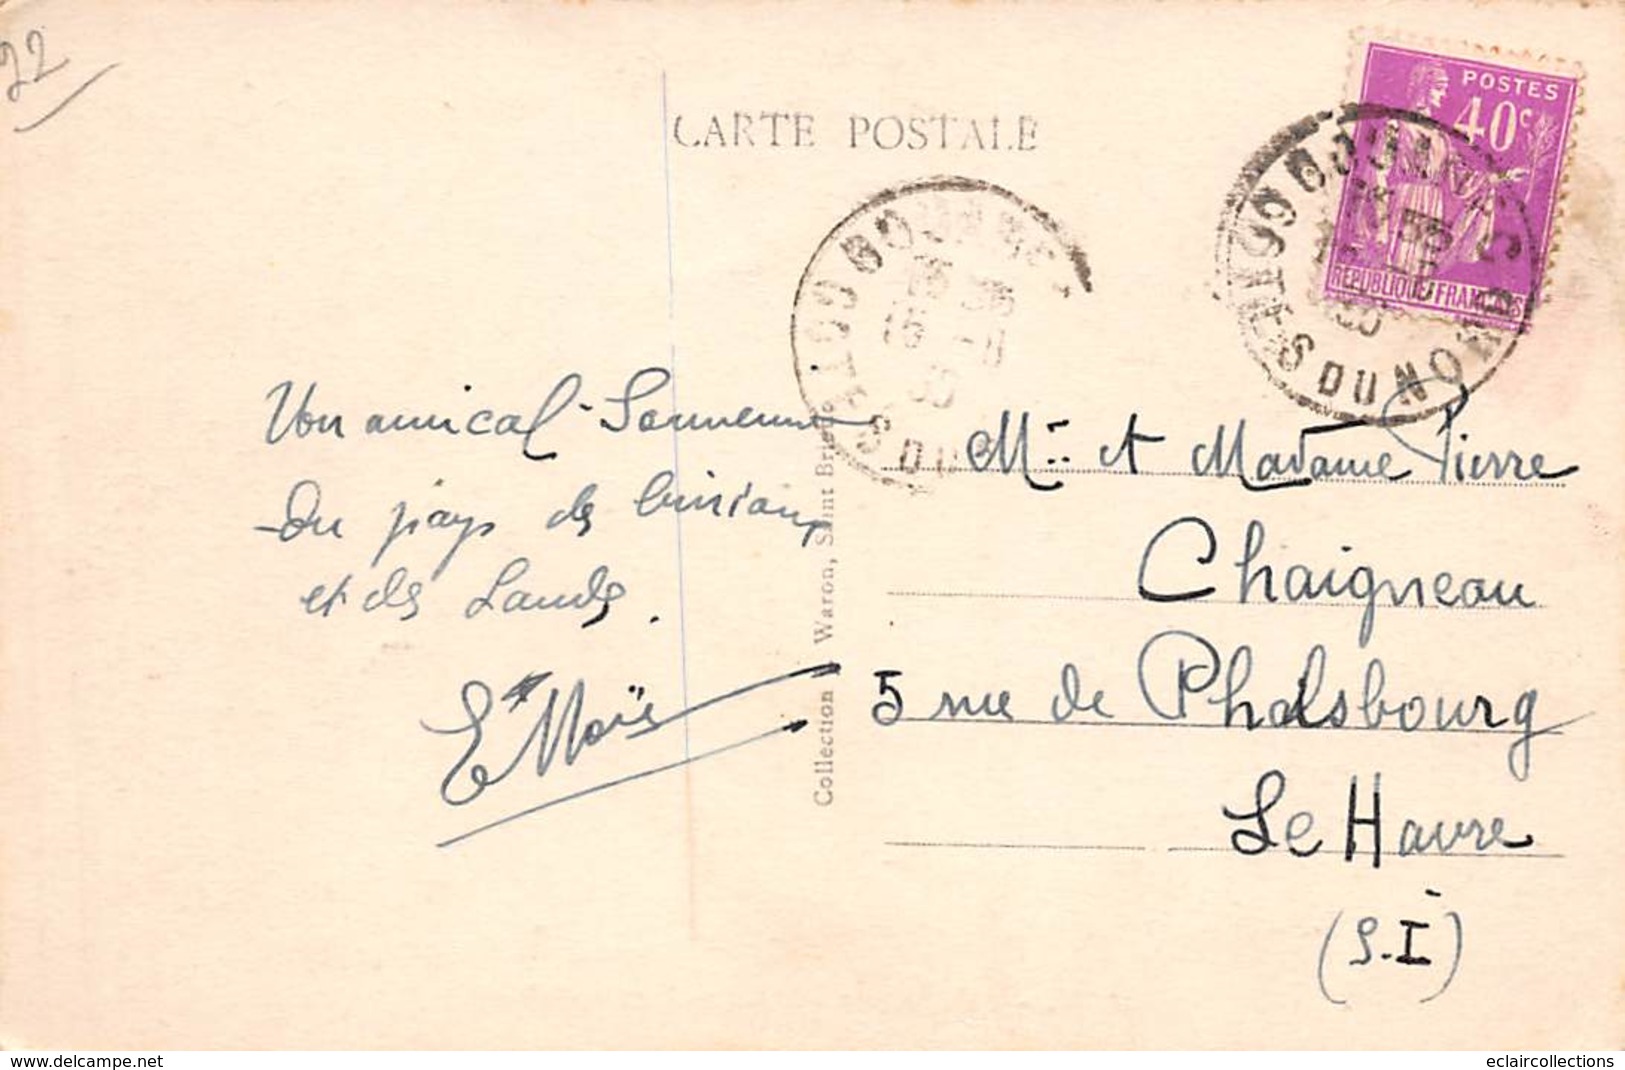 22
CARTE POSTALE
POSTES
40c
RÉPUBLIQUE FRANÇAISE
GOUAREC
CÔTES DU NORD
Un amical Souvenir
du pays des
et des Landes.
E. Moïs
Mr et Madame Pierre
Chaigneau
5 rue de Phalsbourg
Le Havre
(S.-I)
Collection Waron, Saint Brieuc
www.delcampe.net
eclaircollections